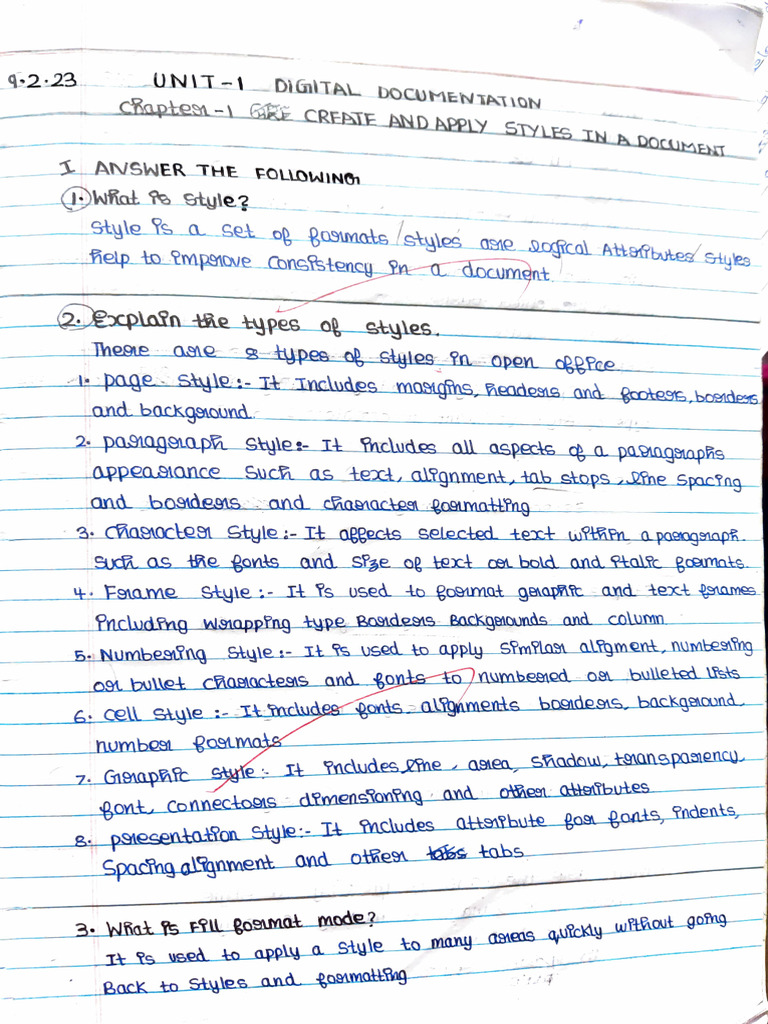 9.2.23 UNIT-1 DIGITAL DOCUMENTATION
Chapter-1 CREATE AND APPLY STYLES IN A DOCUMENT
I ANSWER THE FOLLOWING
1. What is style?
Style is a set of formats/styles are logical Attributes/styles
help to improve consistency in a document.
2. Explain the types of styles.
There are 8 types of styles in open office
1. page style:- It Includes margins, headers and footers, borders
and background.
2. paragraph style:- It includes all aspects of a paragraphs
appearance such as text, alignment, tab stops, line spacing
and borders and character formatting
3. Character Style:- It affects selected text within a paragraph.
such as the fonts and size of text or bold and italic formats.
4. Frame style:- It is used to format graphic and text frames
including wrapping type Borders Backgrounds and column
5. Numbering Style:- It is used to apply similar aligment, numbering
or bullet characters and fonts to numbered or bulleted lists
6. cell style:- It includes fonts, alignments borders, background,
number formats
7. Graphic style:- It includes, line, area, shadow, transparency,
font, connectors dimensioning and other attributes
8. presentation style:- It includes attribute for fonts, indents,
Spacing alignment and other tabs tabs
3. What is Fill format mode?
It is used to apply a style to many areas quickly without going
Back to styles and formatting